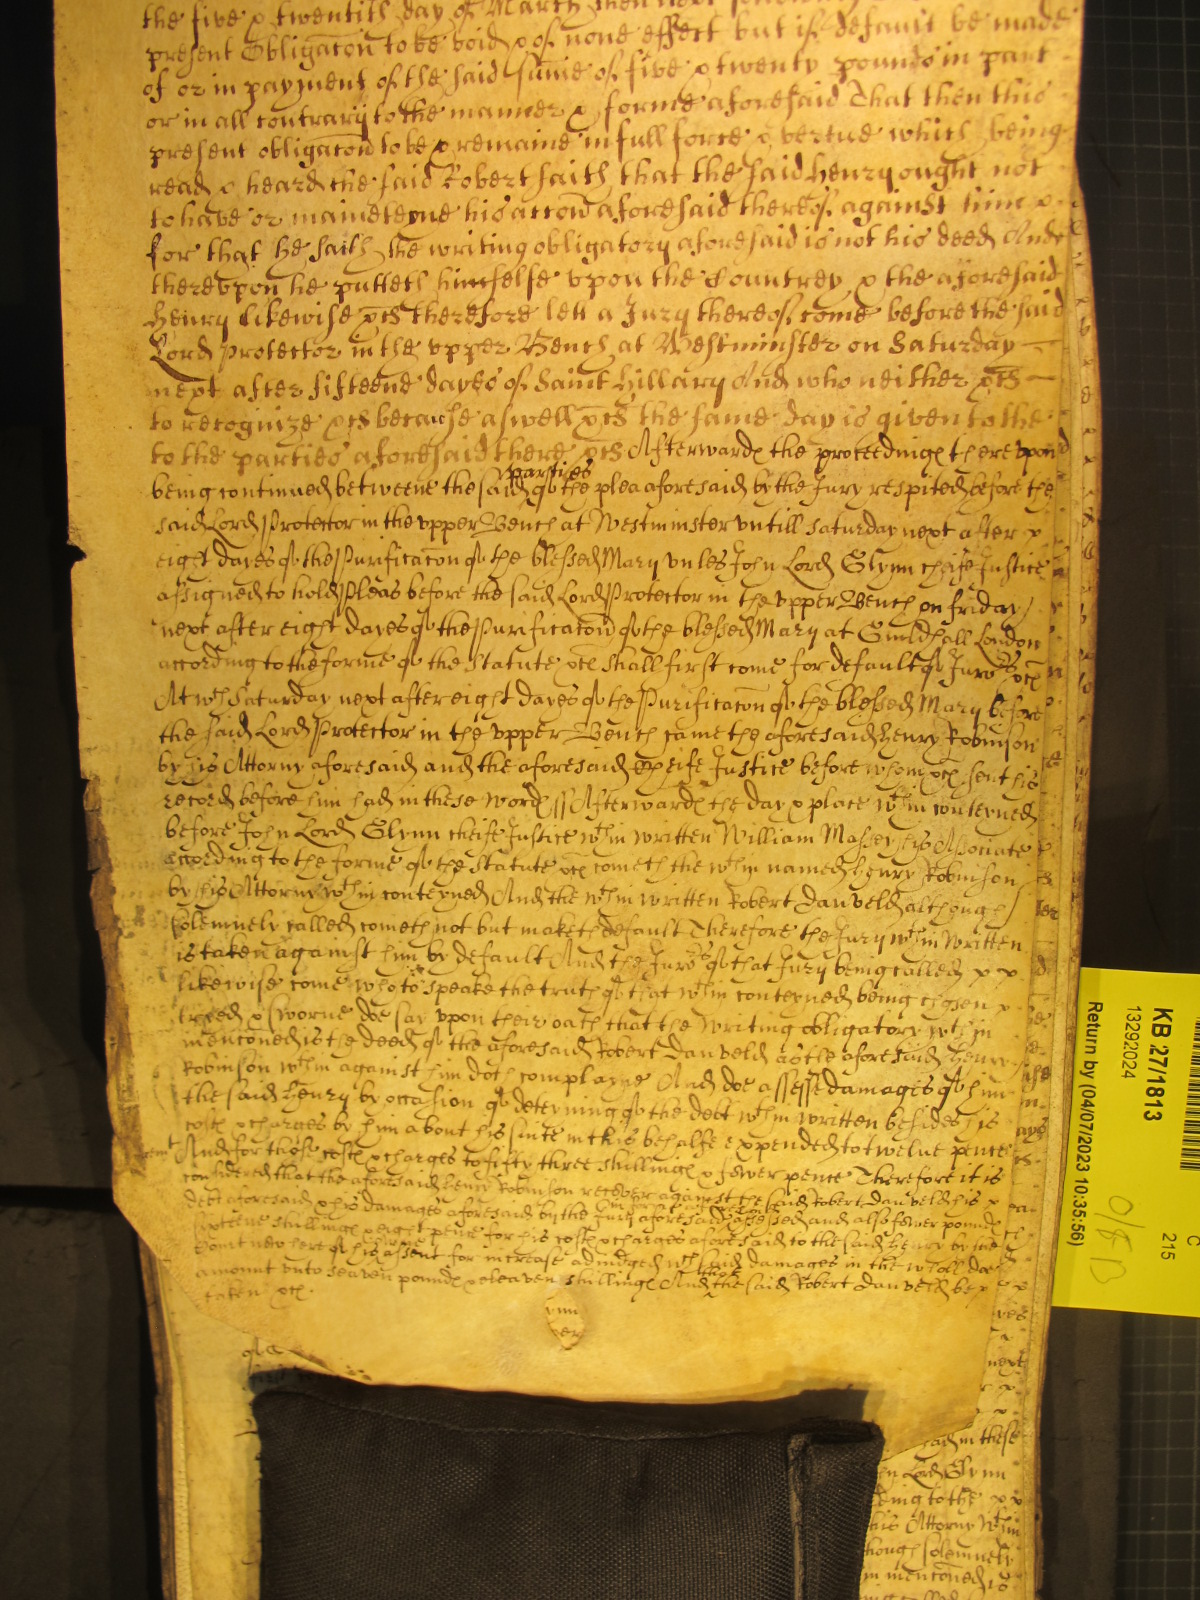 the five & twentith day of March then next
present Obligacon to be void & of none effect but if default be made
of or in payment of the said sume of five & twenty pounds in part
or in all contrary to the manner & forme aforesaid That then this
present obligacon to be & remaine in full force & vertue which being
read & heard the said Robert saith that the said Henry ought not
to have or mainteyne his accon aforesaid thereof against him &
for that he saith the writing obligatory aforesaid is not his deed And
therevpon he putteth himselfe vpon the Countrey & the aforesaid
Henry likewise &c therefore lett a Jury thereof come before the said
Lord Protector in the vpper Bench at Westminster on Saturday
next after fifteene dayes of Saint Hillary And who neither &c
to recognize &c because aswell &c the same day is given to the
to the parties aforesaid there &c Afterwards the proceedings therevpon
being continued betweene the said parties of the plea aforesaid by the Jury respited before the
said Lord Protector in the vpper Bench at Westminster vntill Saturday next after &
eight dayes of the Purificacon of the blessed Mary vnles John Lord Glynn cheife Justice
assigned to hold Pleas before the said Lord Protector in the vpper Bench on friday
next after eight dayes of the Purificacon of the blessed Mary at Guildhall London
according to the forme of the Statute &c shall first come for default of Juro:rs &c
At w:ch Saturday next after eight dayes of the Purificacon of the blessed Mary before
the said Lord Protector in the vpper Bench came the aforesaid Henry Robinson
by his Attorny aforesaid and the aforesaid cheife Justice before whom &c sent his
record before him had in these words ss Afterwards the day & place w:thin conteyned
before John Lord Glynn cheife Justice w:thin written William Massey his Associate
according to the forme of the Statute &c cometh the w:thin named Henry Robinson
by his Attorny w:thin conteyned And the w:thin written Robert Danveld although
solemnely called cometh not but maketh default Therefore the Jury w:thin written
is taken against him by default And the Juro:rs of that Jury being called & &
likewise come who to speake the truth of that w:thin conteyned being chosen &
tryed & sworne doe say vpon their oath that the Writing obligatory w:thin
menconed is the deed of the aforesaid Robert Danveld as the aforesaid Henry
Robinson w:thin against him doth complayne And doe assesse damages of him
the said Henry by occasion of deteyning of the debt w:thin written besides his
costs & charges by him about his suite in this behalfe expended to twelve pence
And for those costs & charges to fifty three shillings & fower pence Therefore it is
considered that the aforesaid Henry Robinson recover against the said Robert Danveld his &
debt aforesaid & his damages aforesaid by the Jury aforesaid assessed and also fower pounds
sixteene shillings & eight pence for his costs & charges aforesaid to the said Henry by the
Court now here of his assent for increase adiudged w:ch said damages in the whole doe
amount vnto seaven pounds & eleaven shillings And the said Robert Danveld be &
taken &c.
had in these
Lord Glynn
ding to the & &
his Attorny w:thin
though solemnely
in menconed is
KB 27/1813
13292024
Return by (04/07/2023 10:35:56)
215
C